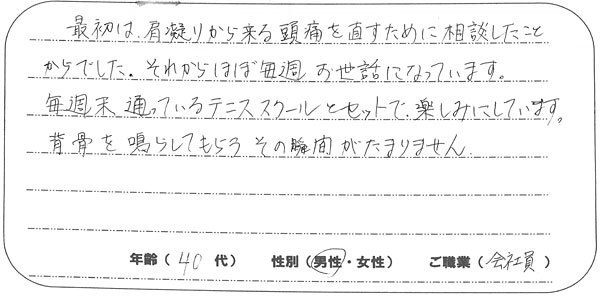 最初は、肩凝りから来る頭痛を直すために相談したこと
からでした。それからほぼ毎週お世話になっています。
毎週末通っているテニススクールとセットで、楽しみにしています。
背骨を鳴らしてもらうその瞬間がたまりません。
年齢(40代) 性別(男性・女性) ご職業(会社員)